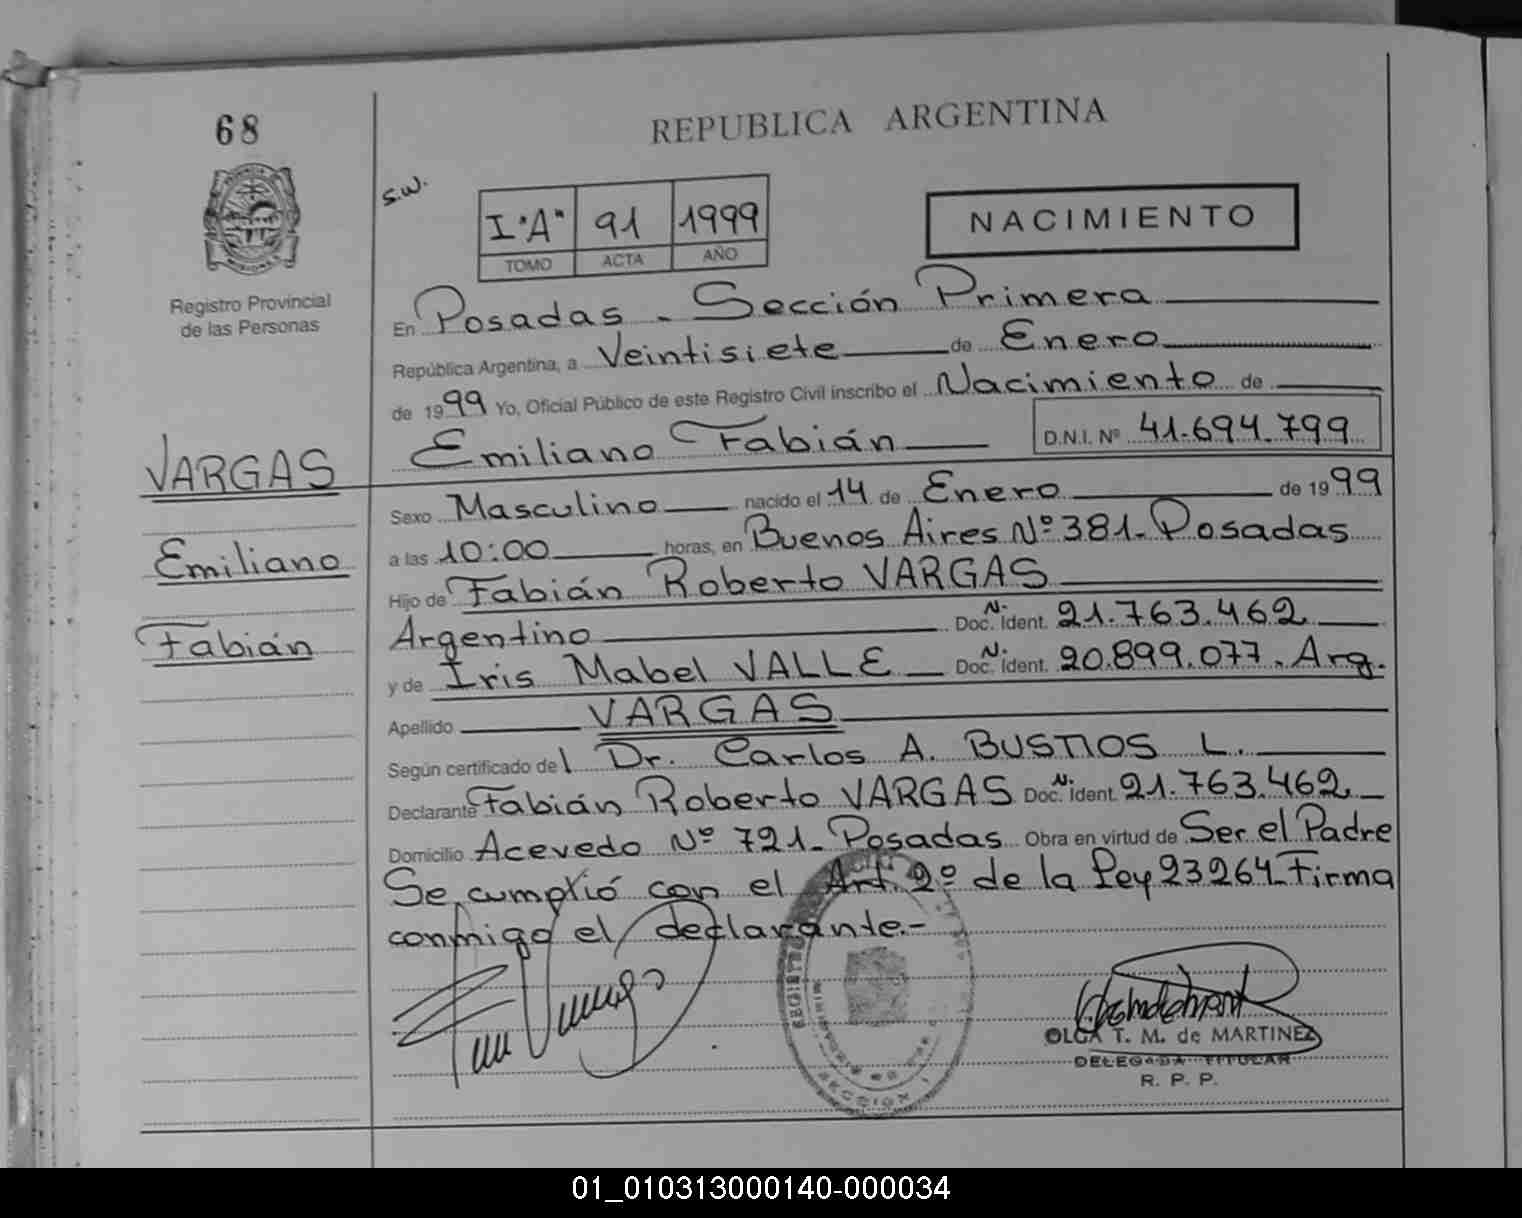 68
REPUBLICA ARGENTINA
s.w.
I "A" 91 1999
TOMO ACTA AÑO
NACIMIENTO
Registro Provincial
de las Personas
En Posadas - Sección Primera
República Argentina, a Veintisiete de Enero
de 1999 Yo, Oficial Público de este Registro Civil inscribo el Nacimiento de
Emiliano Fabián D.N.I. Nº 41.694.799
VARGAS
Sexo Masculino nacido el 14 de Enero de 1999
a las 10:00 horas, en Buenos Aires Nº 381- Posadas
Emiliano
Hijo de Fabián Roberto VARGAS
Argentino N. Doc. Ident. 21.763.462
Fabián
y de Iris Mabel VALLE N. Doc. Ident. 20.899.077. Arg.
Apellido VARGAS
Según certificado del Dr. Carlos A. BUSTIOS L.
Declarante Fabián Roberto VARGAS N. Doc. Ident. 21.763.462
Domicilio Acevedo Nº 721- Posadas Obra en virtud de Ser el Padre
Se cumplió con el Art. 2º de la Ley 23264-Firma
conmigo el declarante.-
REGISTRO
MINISTERIO DE
SECCION I
OLGA T. M. de MARTINEZ
DELEGADA TITULAR
R. P. P.
01_010313000140-000034